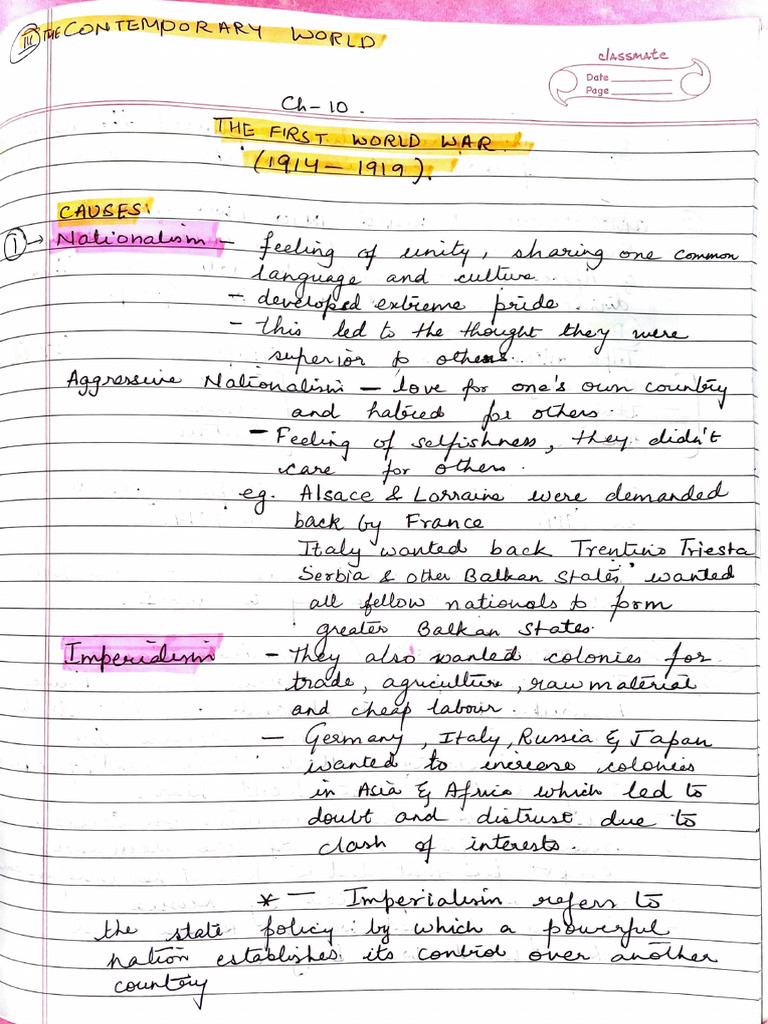 III THE CONTEMPORARY WORLD
classmate
Date
Page
Ch-10.
THE FIRST WORLD WAR.
(1914 - 1919).
CAUSES:
① → Nationalism - feeling of unity, sharing one common
language and culture.
- developed extreme pride.
- this led to the thought they were
superior to others.
Aggressive Nationalism - love for one's own country
and hatred for others.
- Feeling of selfishness, they didn't
care for others.
eg. Alsace & Lorraine were demanded
back by France
Italy wanted back Trentino Triesta
Serbia & other Balkan States wanted
all fellow nationals to form
greater Balkan States.
Imperialism - They also wanted colonies for
trade, agriculture, raw material
and cheap labour.
- Germany, Italy, Russia & Japan
wanted to increase colonies
in Asia & Africa which led to
doubt and distrust due to
clash of interests.
* - Imperialism refers to
the state policy by which a powerful
nation establishes its control over another
country